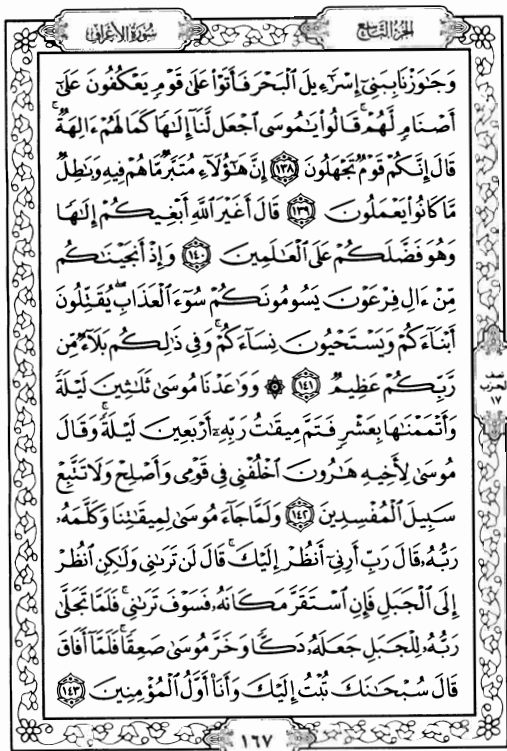 سُورَةُ الأَعْرَافِ
الجُزْءُ التَّاسِعُ
وَجَٰوَزْنَا بِبَنِىٓ إِسْرَٰٓءِيلَ ٱلْبَحْرَ فَأَتَوْا۟ عَلَىٰ قَوْمٍ يَعْكُفُونَ عَلَىٰٓ
أَصْنَامٍ لَّهُمْ ۚ قَالُوا۟ يَٰمُوسَى ٱجْعَل لَّنَآ إِلَٰهًا كَمَا لَهُمْ ءَالِهَةٌ ۚ
قَالَ إِنَّكُمْ قَوْمٌ تَجْهَلُونَ ١٣٨ إِنَّ هَٰٓؤُلَآءِ مُتَبَّرٌ مَّا هُمْ فِيهِ وَبَٰطِلٌ
مَّا كَانُوا۟ يَعْمَلُونَ ١٣٩ قَالَ أَغَيْرَ ٱللَّهِ أَبْغِيكُمْ إِلَٰهًا
وَهُوَ فَضَّلَكُمْ عَلَى ٱلْعَٰلَمِينَ ١٤٠ وَإِذْ أَنجَيْنَٰكُم
مِّنْ ءَالِ فِرْعَوْنَ يَسُومُونَكُمْ سُوٓءَ ٱلْعَذَابِ ۖ يُقَتِّلُونَ
أَبْنَآءَكُمْ وَيَسْتَحْيُونَ نِسَآءَكُمْ ۚ وَفِى ذَٰلِكُم بَلَآءٌ مِّن
رَّبِّكُمْ عَظِيمٌ ١٤١ ۞ وَوَٰعَدْنَا مُوسَىٰ ثَلَٰثِينَ لَيْلَةً
وَأَتْمَمْنَٰهَا بِعَشْرٍ فَتَمَّ مِيقَٰتُ رَبِّهِۦٓ أَرْبَعِينَ لَيْلَةً ۚ وَقَالَ
مُوسَىٰ لِأَخِيهِ هَٰرُونَ ٱخْلُفْنِى فِى قَوْمِى وَأَصْلِحْ وَلَا تَتَّبِعْ
سَبِيلَ ٱلْمُفْسِدِينَ ١٤٢ وَلَمَّا جَآءَ مُوسَىٰ لِمِيقَٰتِنَا وَكَلَّمَهُۥ
رَبُّهُۥ قَالَ رَبِّ أَرِنِىٓ أَنظُرْ إِلَيْكَ ۚ قَالَ لَن تَرَىٰنِى وَلَٰكِنِ ٱنظُرْ
إِلَى ٱلْجَبَلِ فَإِنِ ٱسْتَقَرَّ مَكَانَهُۥ فَسَوْفَ تَرَىٰنِى ۚ فَلَمَّا تَجَلَّىٰ
رَبُّهُۥ لِلْجَبَلِ جَعَلَهُۥ دَكًّا وَخَرَّ مُوسَىٰ صَعِقًا ۚ فَلَمَّآ أَفَاقَ
قَالَ سُبْحَٰنَكَ تُبْتُ إِلَيْكَ وَأَنَا۠ أَوَّلُ ٱلْمُؤْمِنِينَ ١٤٣
نصف
الحزب
١٧
١٦٧